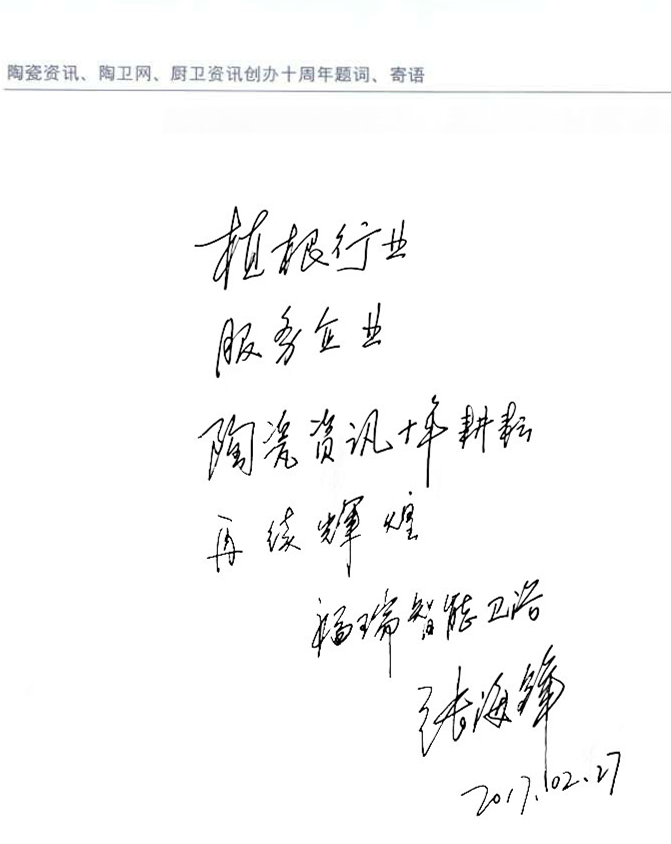 陶瓷资讯、陶卫网、厨卫资讯创办十周年题词、寄语
植根行业
服务企业
陶瓷资讯十年耕耘
再续輝煌
福瑞智能卫浴
张海锋
2017.02.27